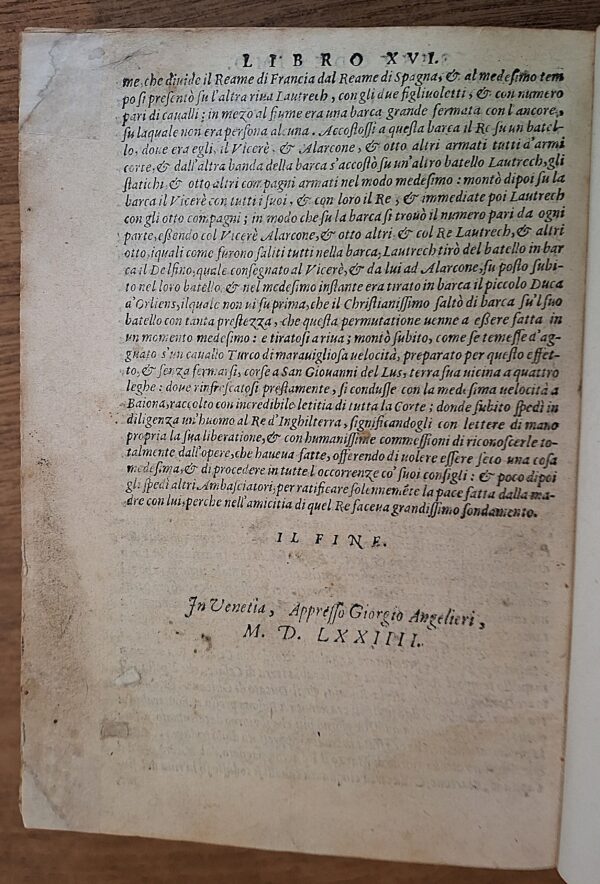 LIBRO XVI.
me, che diuide il Reame di Francia dal Reame di Spagna, & al medesimo tem
po si presentò su l'altra riua Lautrech, con gli due figliuoletti, & con numero
pari di caualli; in mezo al fiume era una barca grande fermata con l'ancore,
su laquale non era persona alcuna. Accostossi a questa barca il Re su un batel-
lo, doue era egli, il Vicerè, & Alarcone, & otto altri armati tutti d'armi
corte, & dall'altra banda della barca s'accostò su un'altro batello Lautrech, gli
statichi, & otto altri compagni armati nel modo medesimo: montò dipoi su la
barca il Vicerè con tutti i suoi, & con loro il Re, & immediate poi Lautrech
con gli otto compagni; in modo che su la barca si trouò il numero pari da ogni
parte, essendo col Vicerè Alarcone, & otto altri, & col Re Lautrech, & altri
otto, iquali come furono saliti tutti nella barca, Lautrech tirò del batello in bar
ca il Delfino, quale consegnato al Vicerè, & da lui ad Alarcone, fu posto subi-
to nel loro batello, & nel medesimo instante era tirato in barca il piccolo Duca
d'Orliens, ilquale non ui fu prima, che il Christianissimo saltò di barca su'l suo
batello con tanta prestezza, che questa permutatione uenne a essere fatta in
un momento medesimo: e tiratosi a riua; montò subito, come se temesse d'ag-
guato s'un cauallo Turco di marauigliosa uelocità, preparato per questo effet-
to, & senza fermarsi, corse a San Giouanni del Lus, terra sua uicina a quattro
leghe: doue rinfrescatosi prestamente, si condusse con la medesima uelocità a
Baiona, raccolto con incredibile letitia di tutta la Corte; donde subito spedì in
diligenza un'huomo al Re d'Inghilterra, significandogli con lettere di mano
propria la sua liberatione, & con humanissime commessioni di riconoscerle to-
talmente dall'opere, che haueua fatte, offerendo di uolere essere seco una cosa
medesima, & di procedere in tutte l'occorrenze co' suoi consigli: & poco dipoi
gli spedì altri Ambasciatori, per ratificare solennemẽte la pace fatta dalla ma-
dre con lui, perche nell'amicitia di quel Re faceua grandissimo fondamento.
IL FINE.
In Venetia, Appresso Giorgio Angelieri,
M. D. LXXIIII.